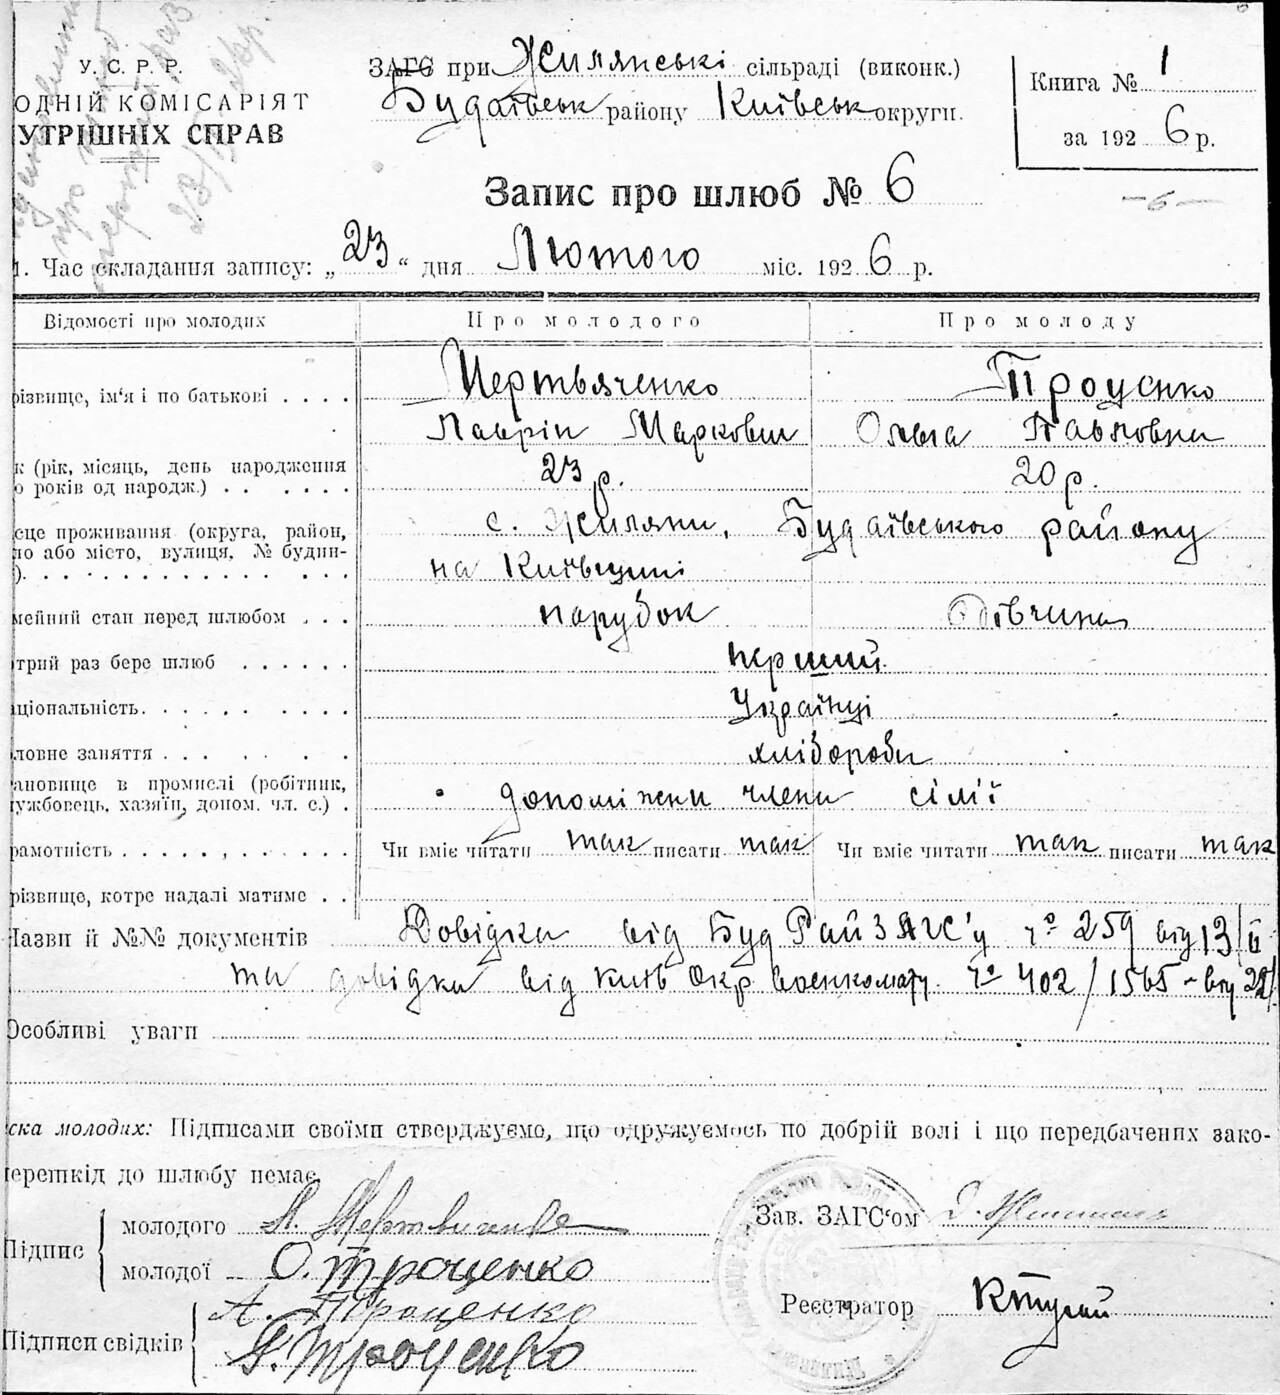 У. С. Р. Р.
ОДНІЙ КОМІСАРІЯТ
УТРІШНІХ СПРАВ
ЗАГС при Жилянські сільраді (виконк.)
Будаївськ району Київськ округи.
Книга № 1
за 192 6 р.
Запис про шлюб № 6
– 6 –
1. Час складання запису: „ 23 “ дня Лютого міс. 192 6 р.
Відомості про молодих Про молодого Про молоду
різвище, ім‘я і по батькові . . . . Мертвяченко Троценко
Лаврін Маркович Ольга Павловна
к (рік, місяць, день народження 23 р. 20 р.
о років од народж.) . . . . . . .
сце проживання (округа, район, с. Жиляни, Будаївського району
ло або місто, вулиця, № будин-
). . . . . . . . . . . . . . . . на Київщині
мейний стан перед шлюбом . . . парубок Дівчина
трий раз бере шлюб . . . . . . перший
аціональність. . . . . . . . . . Українці
ловне заняття . . . . . . . . . хлібороби
ановище в промислі (робітник, допоміжни члени сімії
ужбовець, хазяїн, допом. чл. с.) .
рамотність . . . . . . . . . . . Чи вміє читати так писати так Чи вміє читати так писати так
різвище, котре надалі матиме . .
Назви й №№ документів Довідка від Буд Рай ЗАГС'у ч° 259 від 13/II
та довідка від Київ Окр военкомату ч° 402/1565 – від 22/
Особливі уваги
ска молодих: Підписами своїми стверджуємо, що одружуємось по добрій волі і що передбачених зако-
перешкід до шлюбу немає.
Підпис
молодого Л. Мертвяченко
молодої О. Троценко
Підписи свідків
А. Троценко
Троценко
Зав. ЗАГС‘ом
Реєстратор